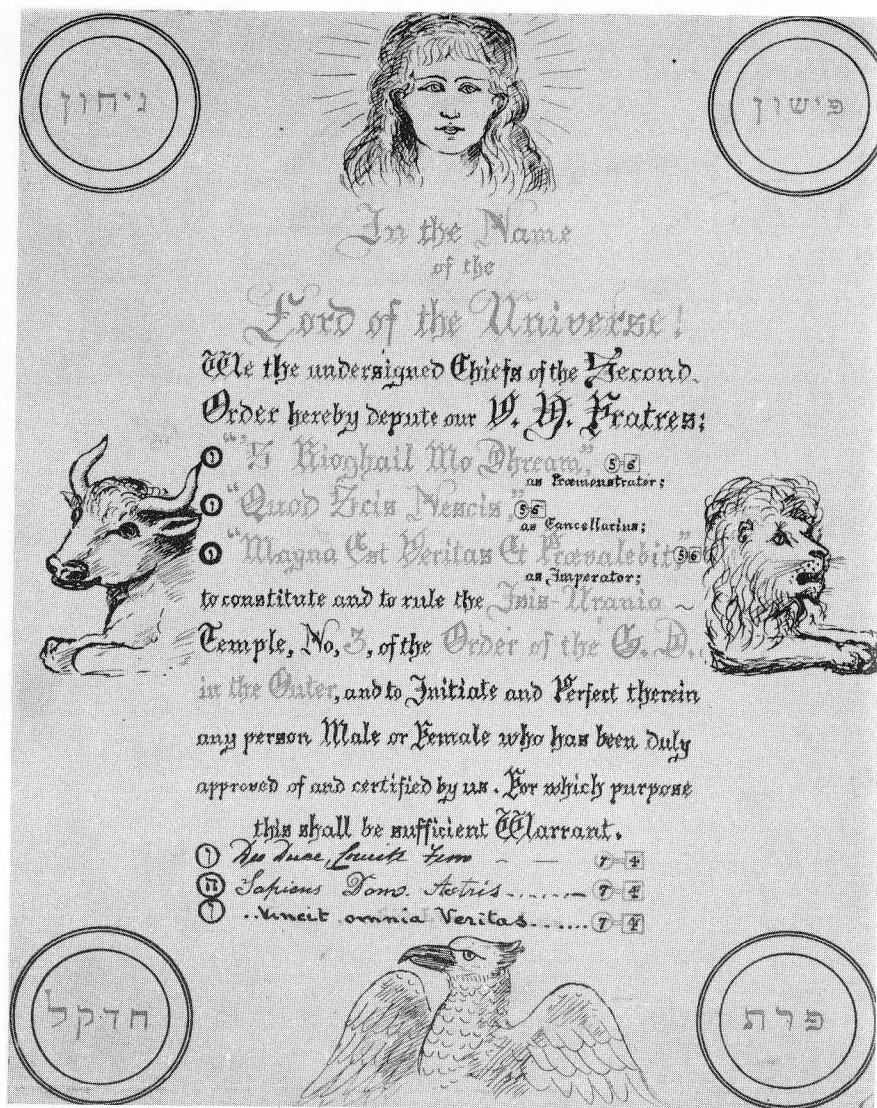 ניחון
פישון
In the Name
of the
Lord of the Universe!
We the undersigned Chiefs of the Second
Order hereby depute our V. H. Fratres:
ו "'S Rioghail Mo Dhream," 5 6
as Præmonstrator;
ו "Quod Scis Nescis," 5 6
as Cancellarius;
ו "Magna Est Veritas Et Prævalebit," 5 6
as Imperator;
to constitute and to rule the Isis-Urania ~
Temple, No, 3, of the Order of the G. D.
in the Outer, and to Initiate and Perfect therein
any person Male or Female who has been duly
approved of and certified by us. For which purpose
this shall be sufficient Warrant.
ו Deo Duce, Comite Ferro ~ — 7-4
ה Sapiens Dom. Astris....... 7-4
ו ..Vincit omnia Veritas....... 7-4
חדקל
פרת